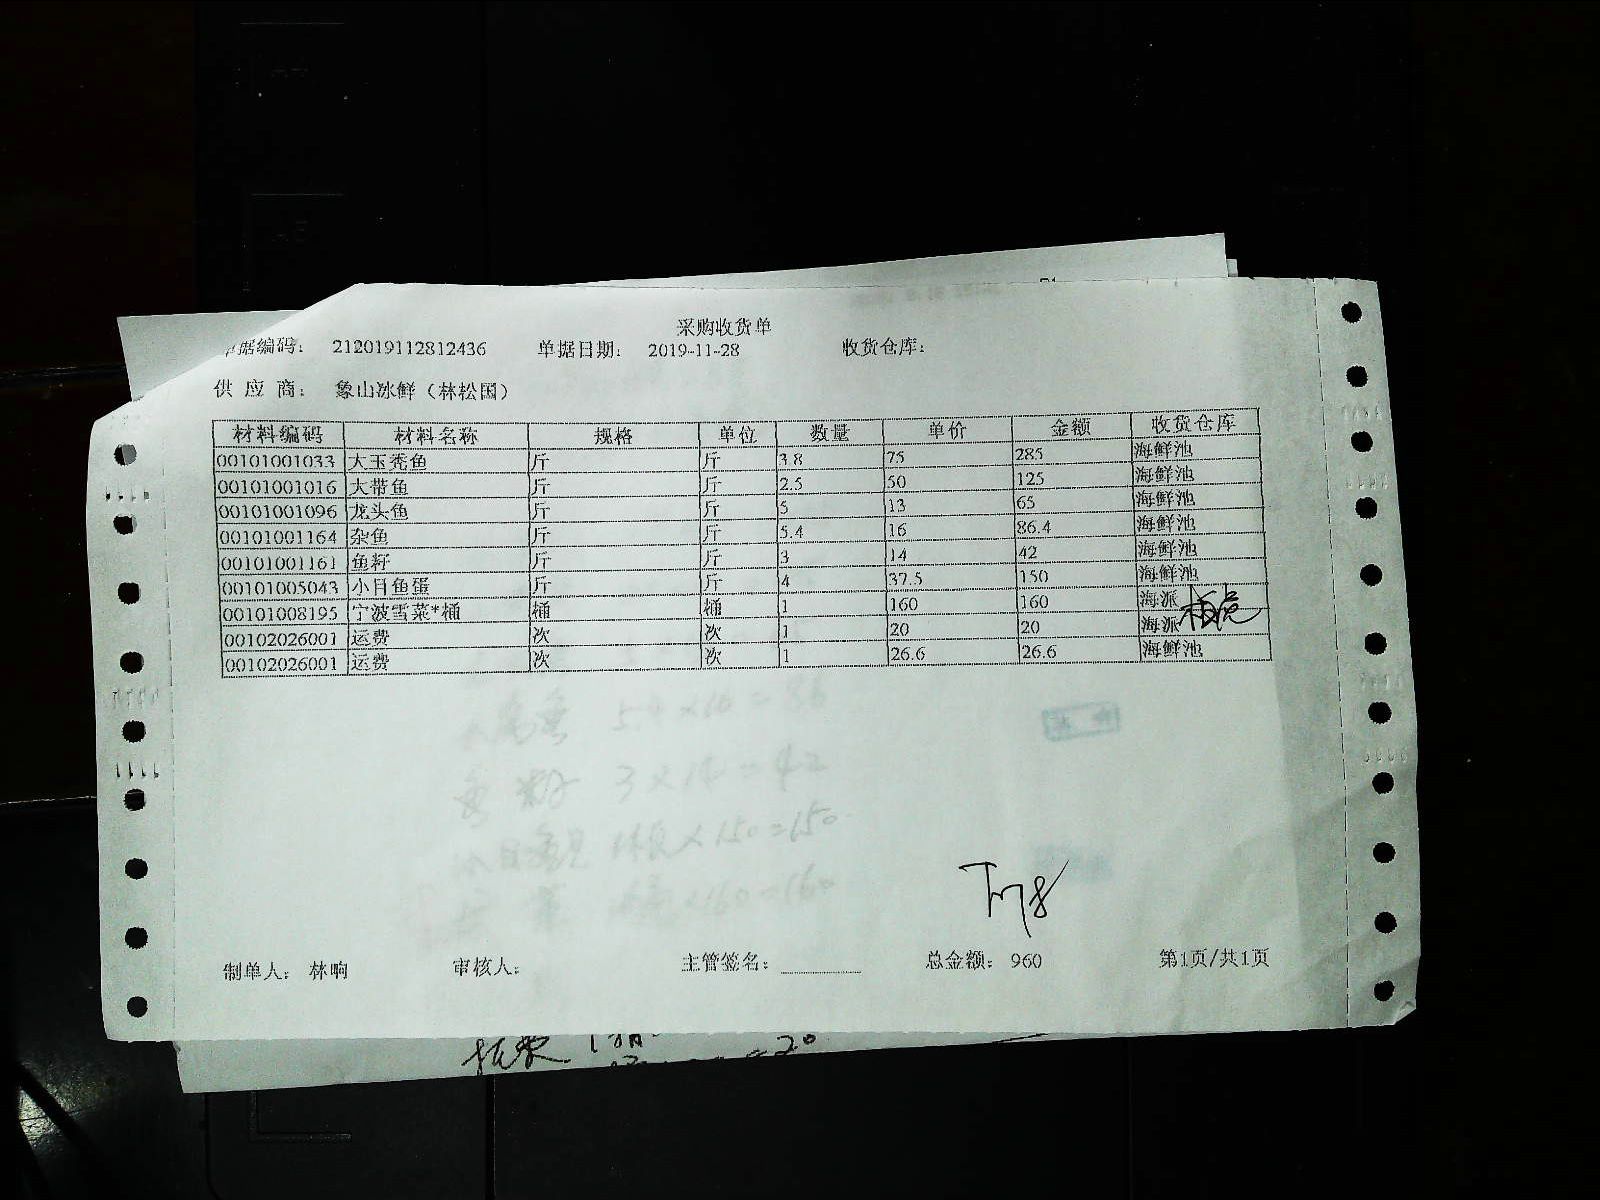 采购收货单
单据编码： 212019112812436 单据日期： 2019-11-28 收货仓库：
供 应 商： 象山冰鲜（林松国）
材料编码 材料名称 规格 单位 数量 单价 金额 收货仓库
00101001033 大玉秃鱼 斤 斤 3.8 75 285 海鲜池
00101001016 大带鱼 斤 斤 2.5 50 125 海鲜池
00101001096 龙头鱼 斤 斤 5 13 65 海鲜池
00101001164 杂鱼 斤 斤 5.4 16 86.4 海鲜池
00101001161 鱼籽 斤 斤 3 14 42 海鲜池
00101005043 小目鱼蛋 斤 斤 4 37.5 150 海鲜池
00101008195 宁波雪菜*桶 桶 桶 1 160 160 海派
00102026001 运费 次 次 1 20 20 海派
00102026001 运费 次 次 1 26.6 26.6 海鲜池
5.4×16=86
3×14=42
×150=150
×160=160
制单人： 林响 审核人： 主管签名： 总金额： 960 第1页/共1页
20